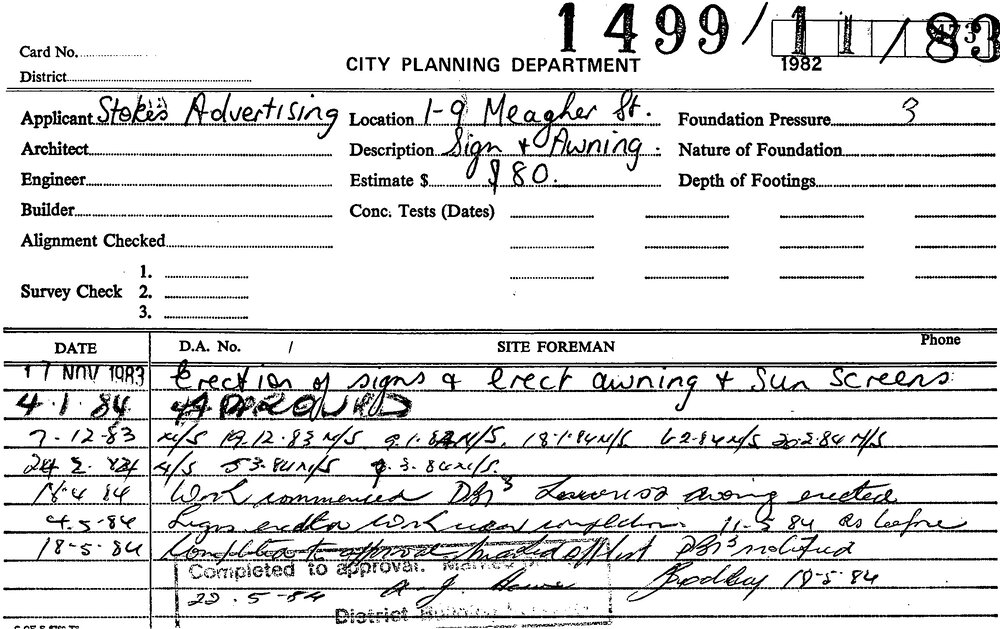 1499/11/83
Card No.
CITY PLANNING DEPARTMENT 1982
District
Applicant Stokes Advertising Location 1-9 Meagher St. Foundation Pressure 3
Architect Description Sign & Awning. Nature of Foundation
Engineer Estimate $ $80. Depth of Footings
Builder Conc. Tests (Dates)
Alignment Checked
1.
Survey Check 2.
3.
DATE D.A. No. / SITE FOREMAN Phone
17 NOV 1983 Erection of signs & erect awning & Sun Screens
4.1.84 APPROVED
7.12.83 N/S 19.12.83 N/S 9.1.84 N/S. 18.1.84 N/S 6.2.84 N/S 20.2.84 N/S
24.2.84 N/S 5.3.84 N/S 9.3.84 N/S.
18.4.84 Work commenced awning erected
4.5.84 Signs work near completion. 11.5.84 as before
18-5-84 Completed to approval notified
Completed to approval.
22.5.84 18-5-84
District Building